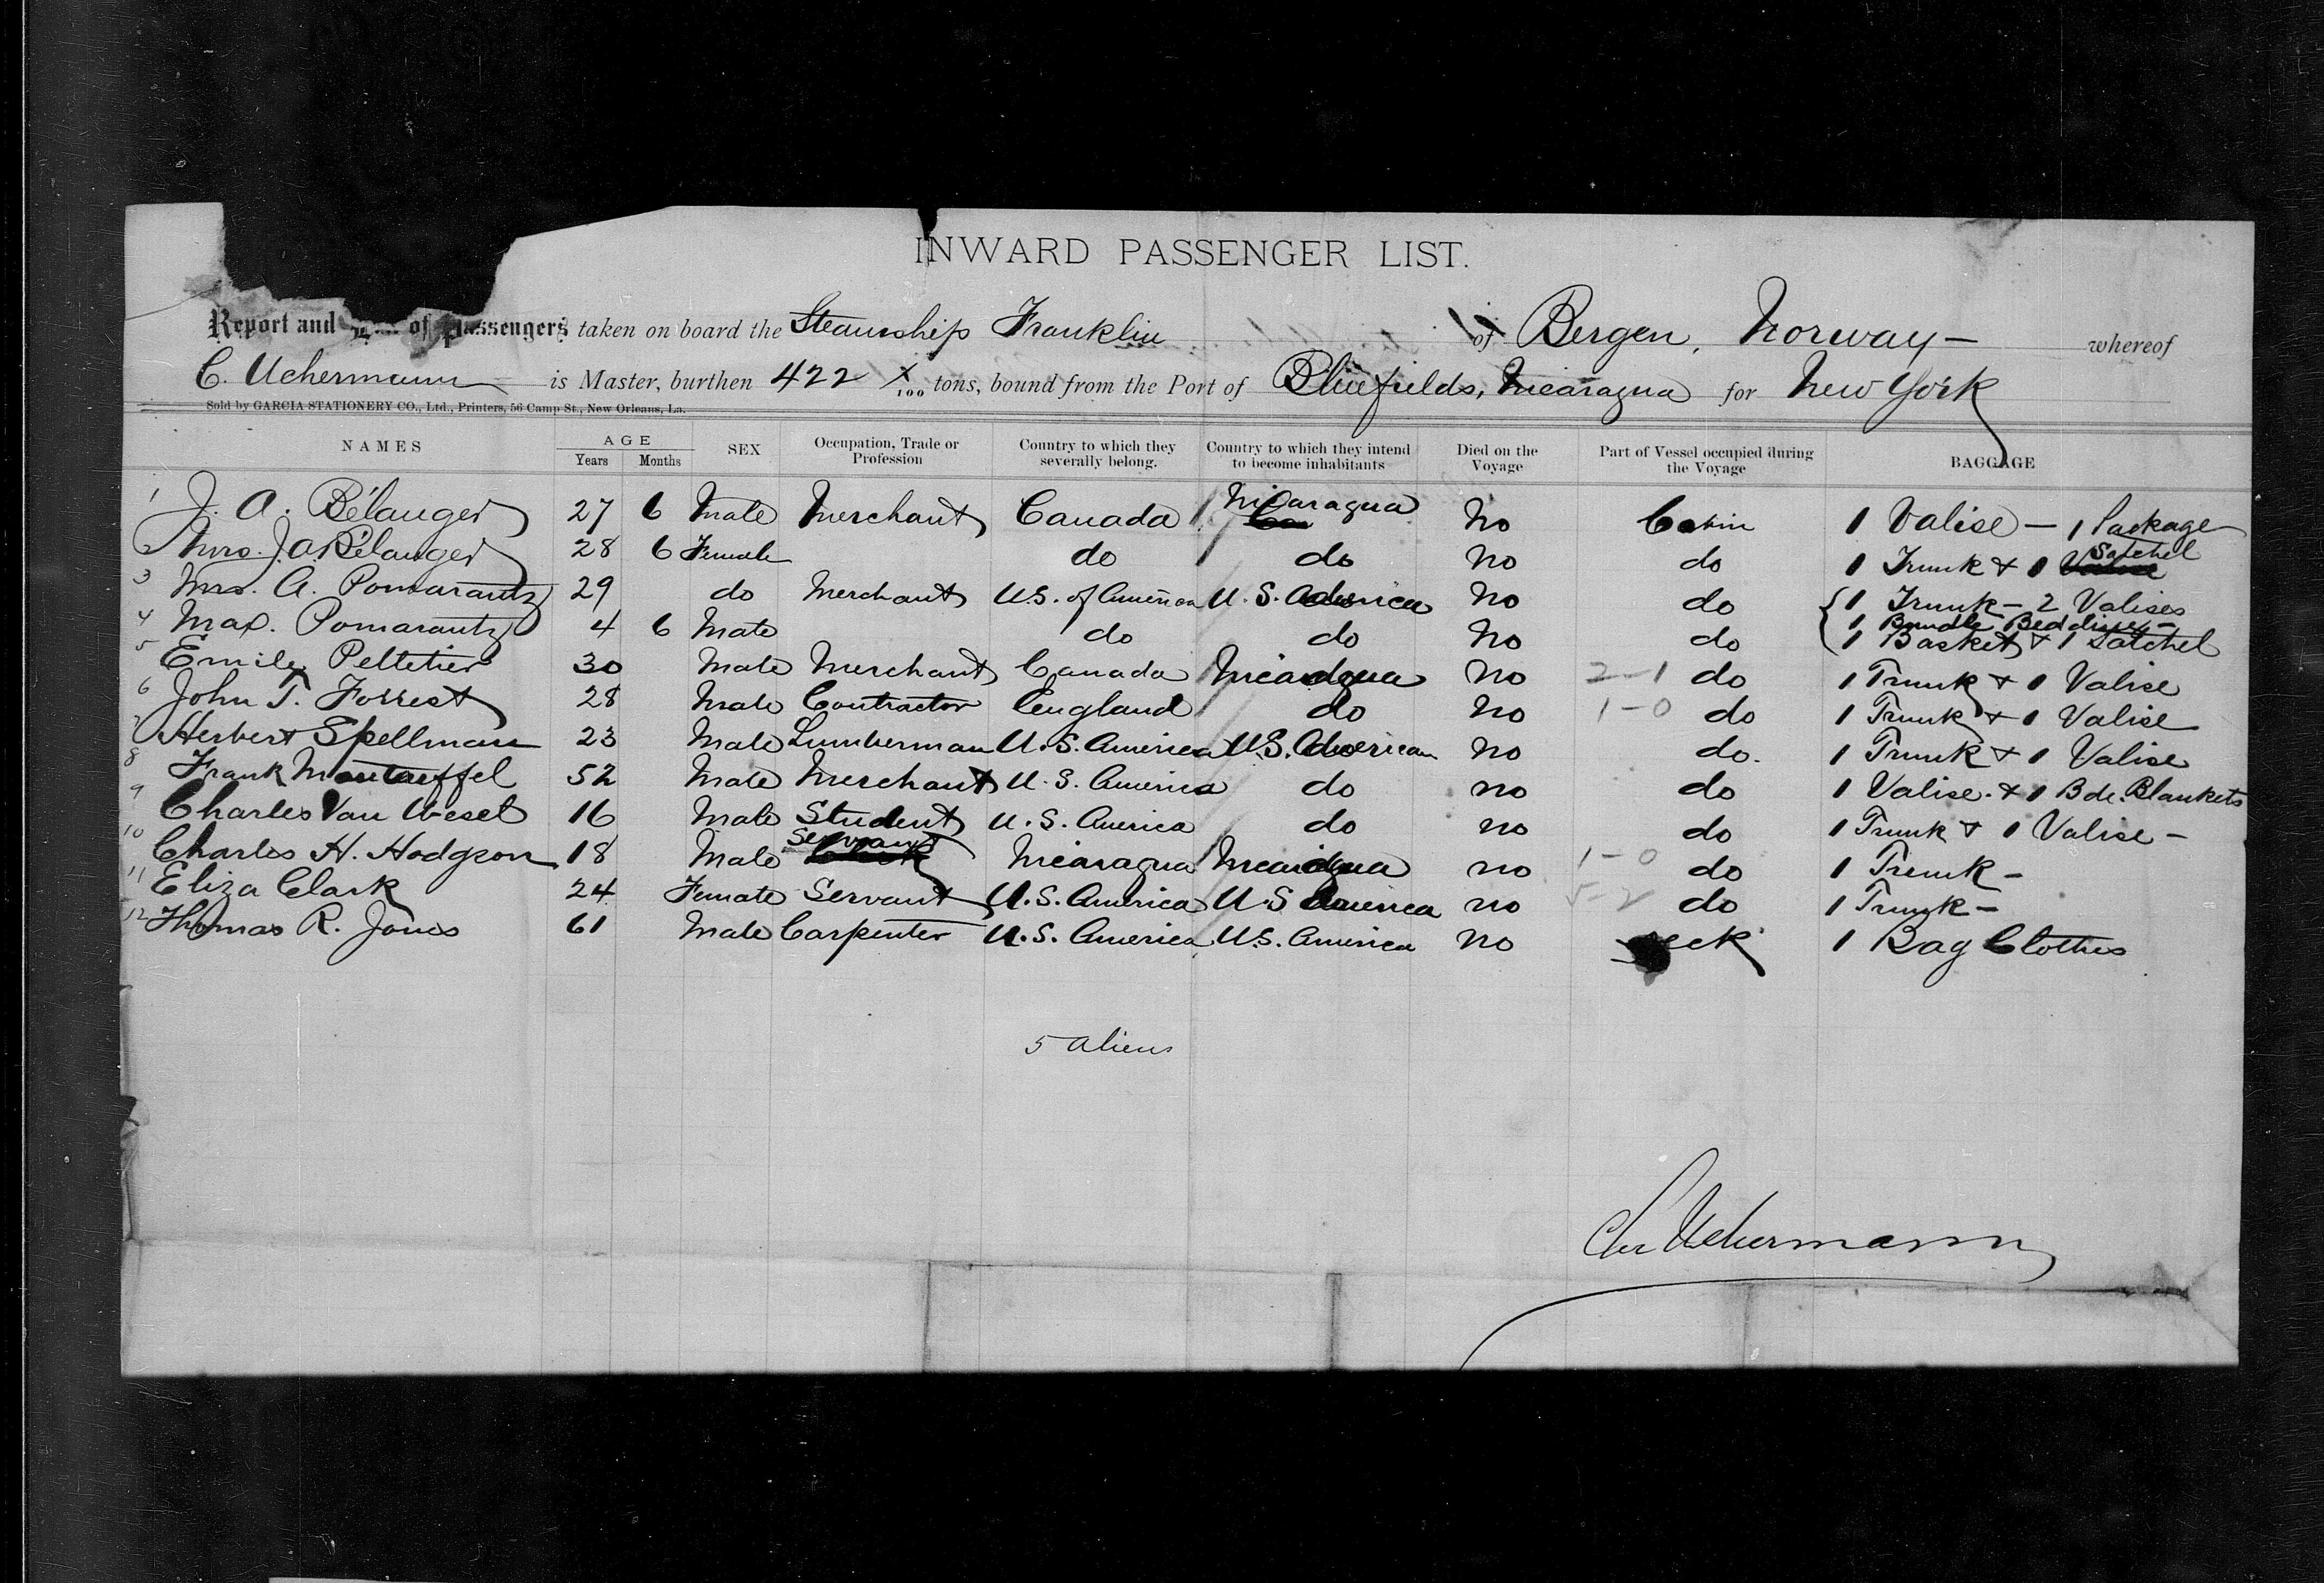 INWARD PASSENGER LIST.
Report and of Passengers taken on board the Steamship Franklin of Bergen, Norway — whereof
C. Uchermann is Master, burthen 422 X/100 tons, bound from the Port of Bluefields, Nicaragua for New York
Sold by GARCIA STATIONERY CO., Ltd., Printers, 56 Camp St., New Orleans, La.
NAMES AGE Years Months SEX Occupation, Trade or Profession Country to which they severally belong. Country to which they intend to become inhabitants Died on the Voyage Part of Vessel occupied during the Voyage BAGGAGE
1 J. A. Bélanger 27 6 Male Merchant Canada Nicaragua No Cabin 1 Valise — 1 Package
2 Mrs. J. A. Bélanger 28 6 Female do do No do 1 Trunk & 1 Satchel
3 Mrs. A. Pomarantz 29 do Merchant U.S. of America U.S. America No do 1 Trunk — 2 Valises
1 Bundle Bedding —
4 Max. Pomarantz 4 6 Male do do No do 1 Basket & 1 Satchel
5 Emile Pelletier 30 Male Merchant Canada Nicaragua No 2-1 do 1 Trunk & 1 Valise
6 John T. Forrest 28 Male Contractor England do No 1-0 do 1 Trunk & 1 Valise
7 Herbert Spellman 23 Male Lumberman U.S. America U.S. American No do. 1 Trunk & 1 Valise
8 Frank Manteuffel 52 Male Merchant U.S. America do no do 1 Valise. & 1 Bdl. Blankets
9 Charles Van Wesel 16 Male Student U.S. America do no do 1 Trunk & 1 Valise —
10 Charles H. Hodgson 18 Male Servant Nicaragua Nicaragua no 1-0 do 1 Trunk —
11 Eliza Clark 24 Female Servant U.S. America U.S America no 5-2 do 1 Trunk —
12 Thomas R. Jones 61 Male Carpenter U.S. America U.S. America No 1 Bag Clothes
5 aliens
Chr Uchermann